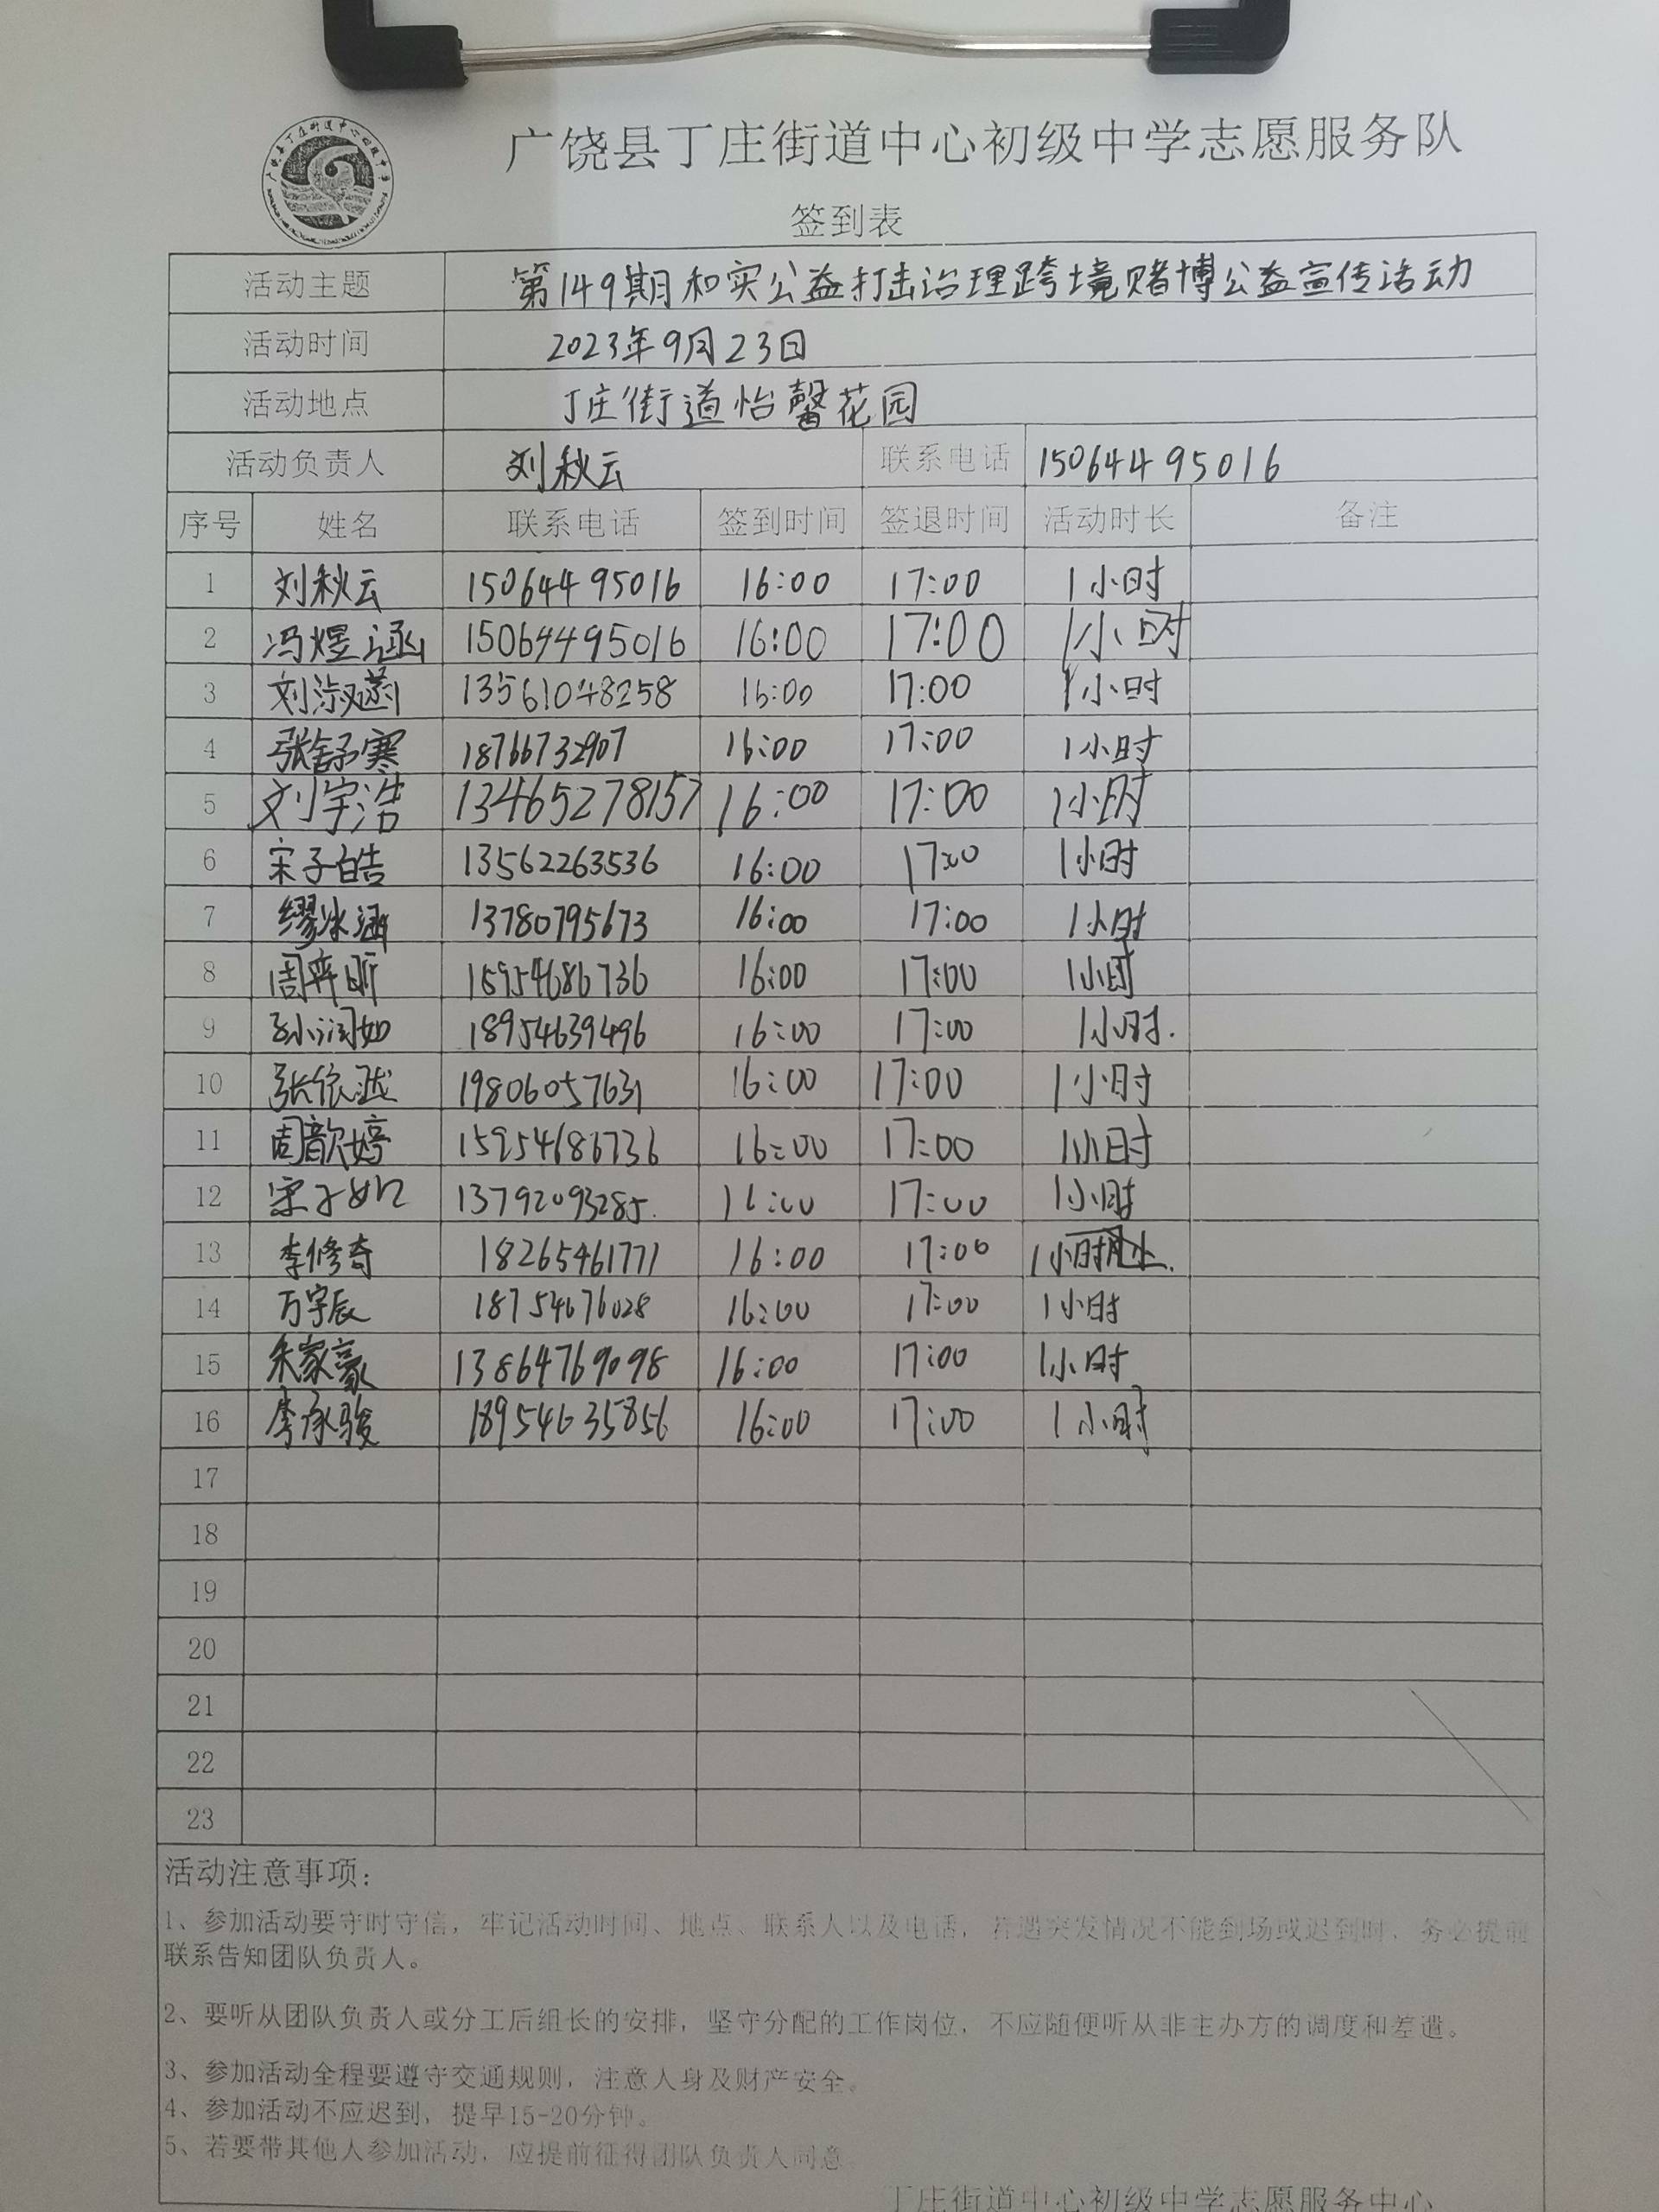 广饶县丁庄街道中心初级中学志愿服务队
签到表
活动主题 第149期和实公益打击治理跨境赌博公益宣传活动
活动时间 2023年9月23日
活动地点 丁庄街道怡馨花园
活动负责人 刘秋云 联系电话 15064495016
序号 姓名 联系电话 签到时间 签退时间 活动时长 备注
1 刘秋云 15064495016 16:00 17:00 1小时
2 冯煜涵 15064495016 16:00 17:00 1小时
3 刘淑菡 13561048258 16:00 17:00 1小时
4 张舒寒 18766732907 16:00 17:00 1小时
5 刘宇浩 13465278157 16:00 17:00 1小时
6 宋子皓 13562263536 16:00 17:00 1小时
7 缪冰涵 13780795673 16:00 17:00 1小时
8 周弈昕 15954686736 16:00 17:00 1小时
9 孙润如 18954639496 16:00 17:00 1小时.
10 张依泷 19806057631 16:00 17:00 1小时
11 周歆婷 15954686736 16:00 17:00 1小时
12 宋子如 13792093285. 16:00 17:00 1小时
13 李修奇 18265461771 16:00 17:00 1小时
14 万宇辰 18754676028 16:00 17:00 1小时
15 朱家豪 13864769098 16:00 17:00 1小时
16 李承骏 18954635856 16:00 17:00 1小时
17
18
19
20
21
22
23
活动注意事项：
1、参加活动要守时守信，牢记活动时间、地点、联系人以及电话，若遇突发情况不能到场或迟到时，务必提前
联系告知团队负责人。
2、要听从团队负责人或分工后组长的安排，坚守分配的工作岗位，不应随便听从非主办方的调度和差遣。
3、参加活动全程要遵守交通规则，注意人身及财产安全。
4、参加活动不应迟到，提早15-20分钟。
5、若要带其他人参加活动，应提前征得团队负责人同意
丁庄街道中心初级中学志愿服务中心